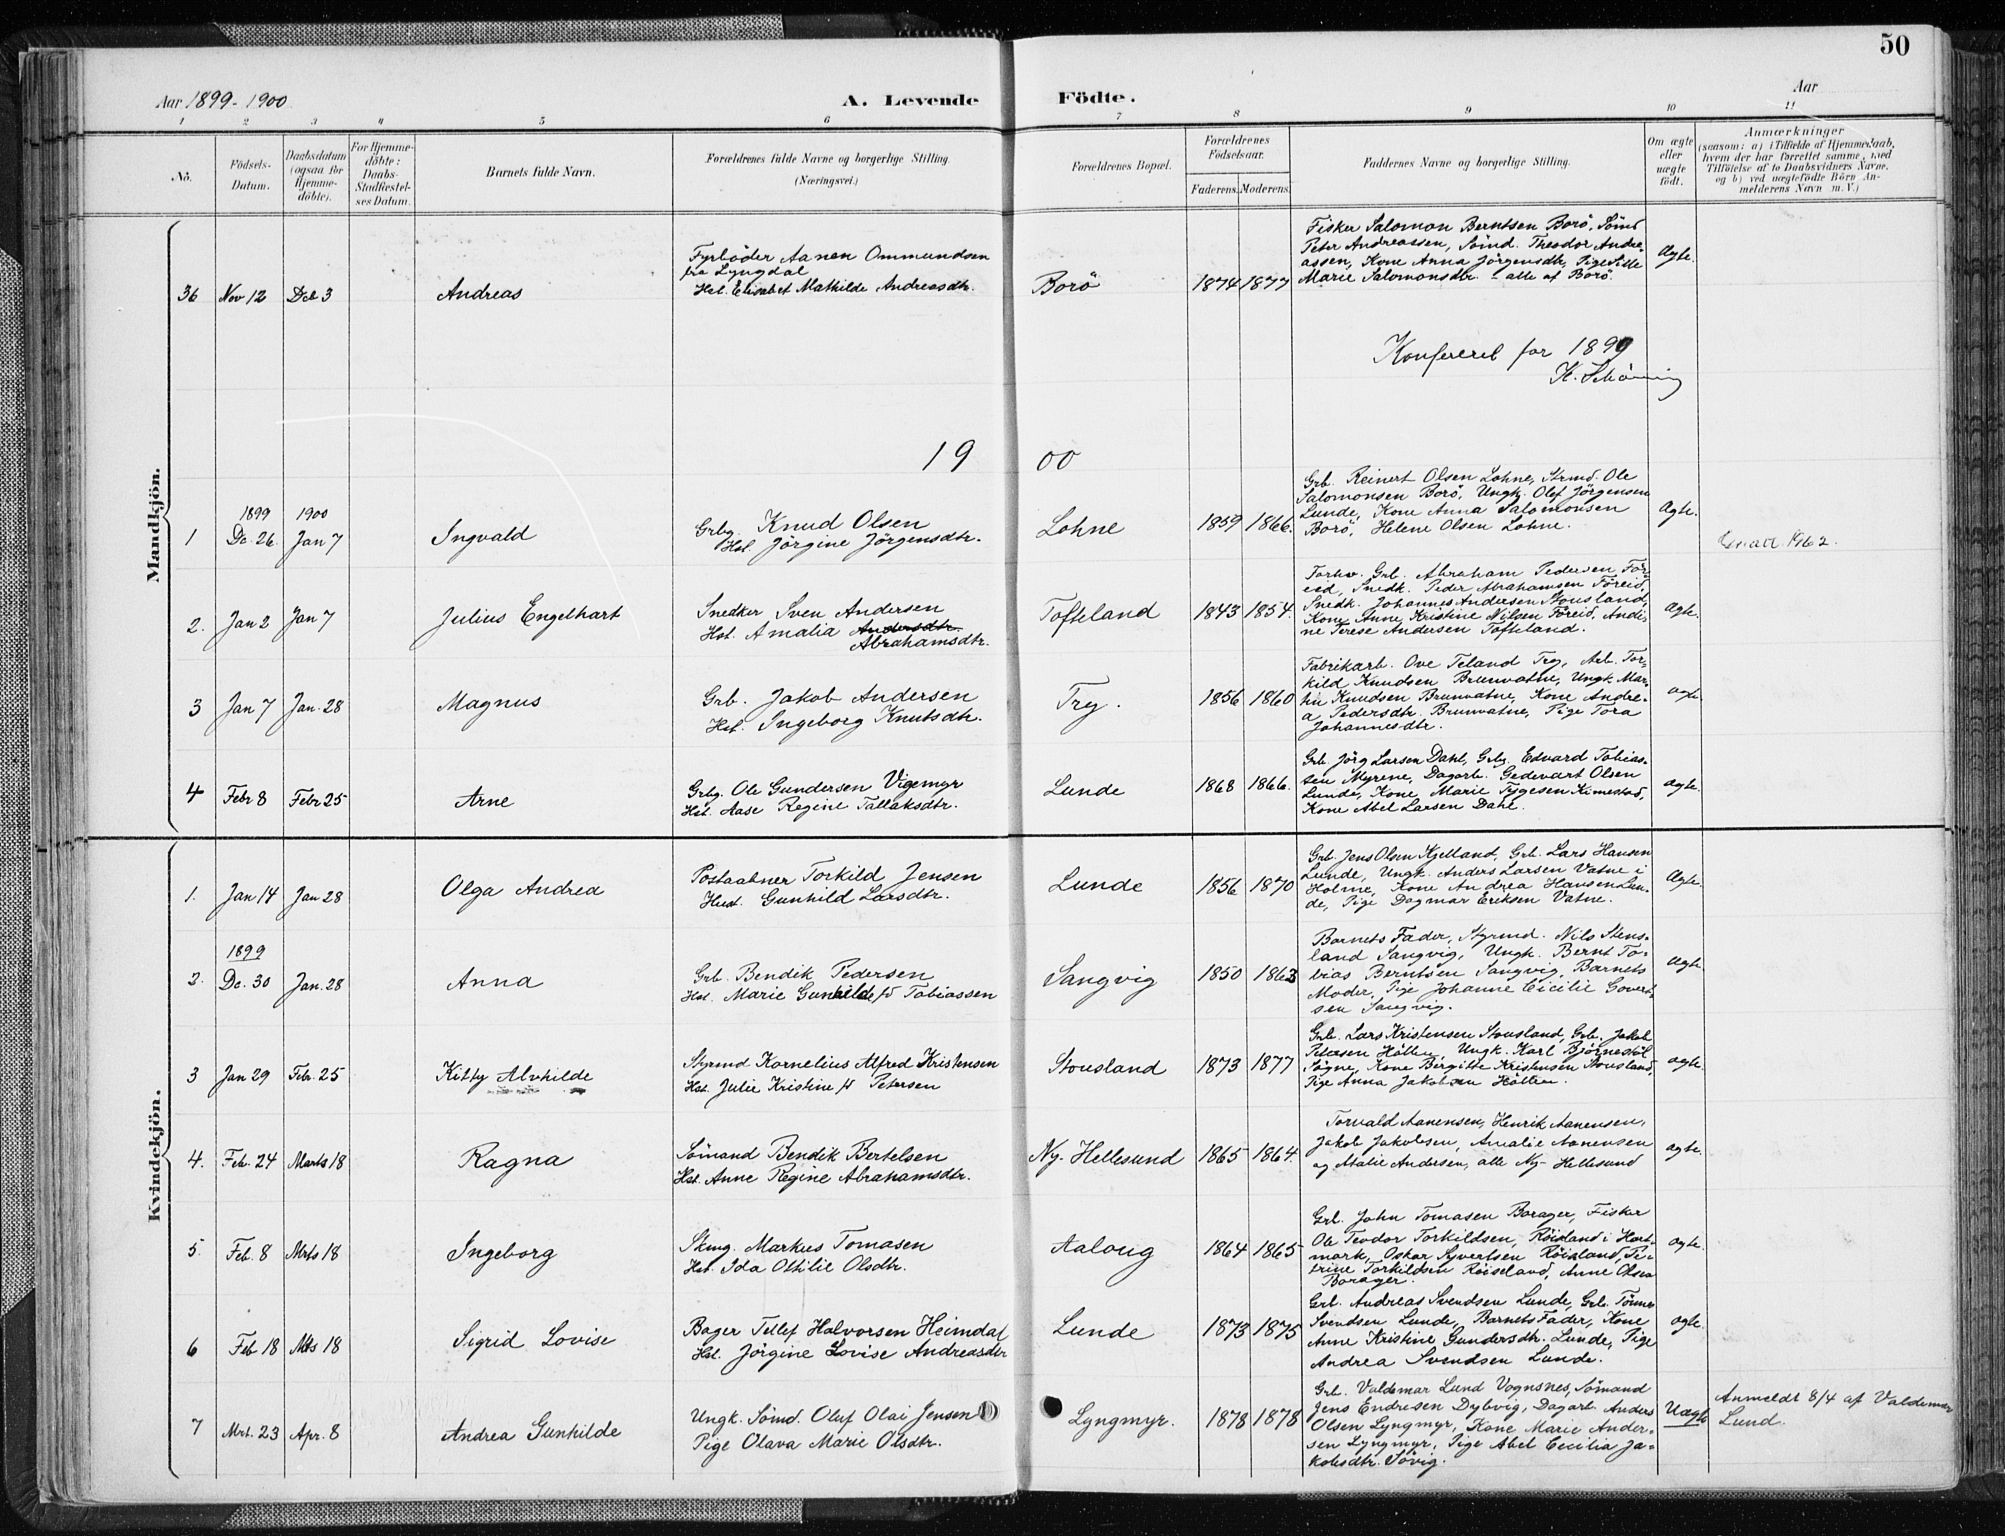 50
Aar 1899-1900
A. Levende
Födte.
Aar
1 2 3 4 5 6 7 8 9 10 11
No.
Födsels-
Datum.
Daabsdatum
(ogsaa for
Hjemme-
döbte).
For Hjemme-
döbte:
Daabs-
Stadfæstel-
ses Datum.
Barnets fulde Navn.
Forældrenes fulde Navne og borgerlige Stilling.
(Næringsvei.)
Forældrenes Bopæl.
Forældrenes
Födselsaar.
Faderens. Moderens.
Faddernes Navne og borgerlige Stilling.
Om ægte
eller
uægte
født.
Anmærkninger
(saasom: a) i Tilfælde af Hjemmedaab,
hvem der har forrettet samme, med
Tilføielse af to Daabsvidners Navne,
og b) ved uægtefødte Börn An-
melderens Navn m.V.)
Mandkjön.
36 Nov 12 Dec 3
Andreas
Fyrböder Aanen Ommundsen
fra Lyngdal
Hst. Elisabet Mathilde Andreasdtr.
Borö
1874 1877
Fisker Salomon Berntsen Borö, Sömd
Peter Andreassen, Sömd. Theodor Andre-
assen, Kone Anna Jörgensdtr, Pige Sille
Marie Salomonsdtr - alle af Borö
Ægte.
Konfereret for 1899
K. Schönning
19 00
1 1899 De. 26. 1900 Jan 7
Ingvald
Grbg. Knud Olsen
Hst. Jörgine Jörgensdtr.
Lohne
1859 1866.
Grb. Reinert Olsen Lohne, Strmd. Ole
Salomonsen Borö, Ungk. Olof Jörgensen
Lunde, Kone Anna Salomonsen
Borö, Helene Olsen Lohne.
Ægte.
1962.
2. Jan 2 Jan 7
Julius Engelhart
Snedker Sven Andersen
Hst. Amalia Andersdtr.
Abrahamsdtr.
Tofteland
1843 1854.
Forhv. Grb. Abraham Pedersen För-
eid, Snedk. Peder Abrahamsen Föreid,
Snedk. Johannes Andersen Stousland,
Kone Anne Kristine Nilsen Föreid, Andi-
ne Terese Andersen Tofteland.
ægte.
3 Jan 7 Jan. 28
Magnus
Grb. Jakob Andersen
Hst. Ingeborg Knutsdtr.
Try.
1856 1860
Fabrikarb. Ove Teland Try, Arb. Tor-
kild Knudsen Brunvatne, Ungk. Mar-
tin Knudsen Brunvatne, Kone Andre-
a Pedersdtr. Brunvatne, Pige Tora
Johannesdtr.
ægte
4 Febr 8 Febr 25
Arne
Grbg. Ole Gundersen Vigemyr
Hst. Aase Regine Tallaksdtr.
Lunde
1868 1866.
Grb. Jörg Larsen Dahl, Grbg. Edvard Tobias-
sen Myrene, Dagarb. Gedevart Olsen
Lunde, Kone Marie Tejgesen Kimestad,
Kone Abel Larsen Dahl.
ægte.
Kvindekjön.
1. Jan 14 Jan 28
Olga Andrea
Postaabner Torkild Jensen
Hust. Gunhild Larsdtr.
Lunde
1856 1870
Grb. Jens Olsen Kjelland, Grb. Lars Hansen
Lunde, Ungk. Anders Larsen Vatne i
Holme, Kone Andrea Hansen Lun-
de, Pige Dagmar Eriksen Vatne.
Ægte.
2. 1899 De. 30 Jan. 28
Anna
Grb. Bendik Pedersen
Hst. Marie Gunhilde fd Tobiassen
Sangvig
1850 1863
Barnets Fader, Styrmd. Nils Stens-
land Sangvig, Ungk. Bernt To-
bias Berntsen Sangvig, Barnets
Moder, Pige Johanne Cicilie Govert-
sen Sangvig.
ægte
3 Jan 29 Febr. 25
Kitty Alvhilde
Styrmd Kornelius Alfred Kristensen
Hst. Julie Kristine fd Petersen
Stousland
1873 1877
Grb. Lars Kristensen Stousland, Grb. Jakob
Petersen Hölten, Ungk. Karl Bjørnestöl
Søgne, Kone Bergitte Kristensen Stousland,
Pige Anna Jakobsen Hölten.
ægte.
4. Feb. 24 Marts 18
Ragna
Sömand Bendik Bertelsen
Hst. Anne Regine Abrahamsdtr.
Ny-Hellesund
1865 1864.
Torvald Aanensen, Henrik Aanensen,
Jakob Jakobsen, Amalie Aanensen
og Atalie Andersen, alle Ny-Hellesund
ægte.
5. Feb. 8 Mrts 18
Ingeborg
Skmg. Markus Tomasen
Hst. Ida Othilie Olsdtr.
Aaloug
1864 1865
Grb. John Tomasen Borager, Fisker
Ole Teodor Torkildsen, Röisland i Hart-
mark, Oskar Syvertsen Röisland, Pe-
trine Torkildsen Röiseland, Anne Olsen
Borager.
ægte.
6 Feb 18 Mts 18
Sigrid Lovise
Bager Tellef Halvorsen Heimdal
Hst. Jörgine Lovise Andreasdtr
Lunde
1873 1875
Grb. Andreas Svendsen Lunde, Grb. Tönnes
Svendsen Lunde, Barnets Fader, Kone
Anne Kristine Gundersdtr. Lunde, Pige
Andrea Svendsen Lunde.
ægte.
7 Mrt. 23 Apr. 8
Andrea Gunhilde
Ungk. Sömd. Oluf Olai Jensen
Pige Olava Marie Olsdtr.
Lyngmyr.
1878 1878
Grb. Valdemar Lund Vognsnes, Sömand
Jens Endresen Dybvig, Dagarb. Anders
Olsen Lyngmyr, Kone Marie Ander-
sen Lyngmyr, Pige Abel Cecilia Ja-
kobsdtr. Sövig.
Uægte
Anmeldt 8/4 af Valdemar
Lund.